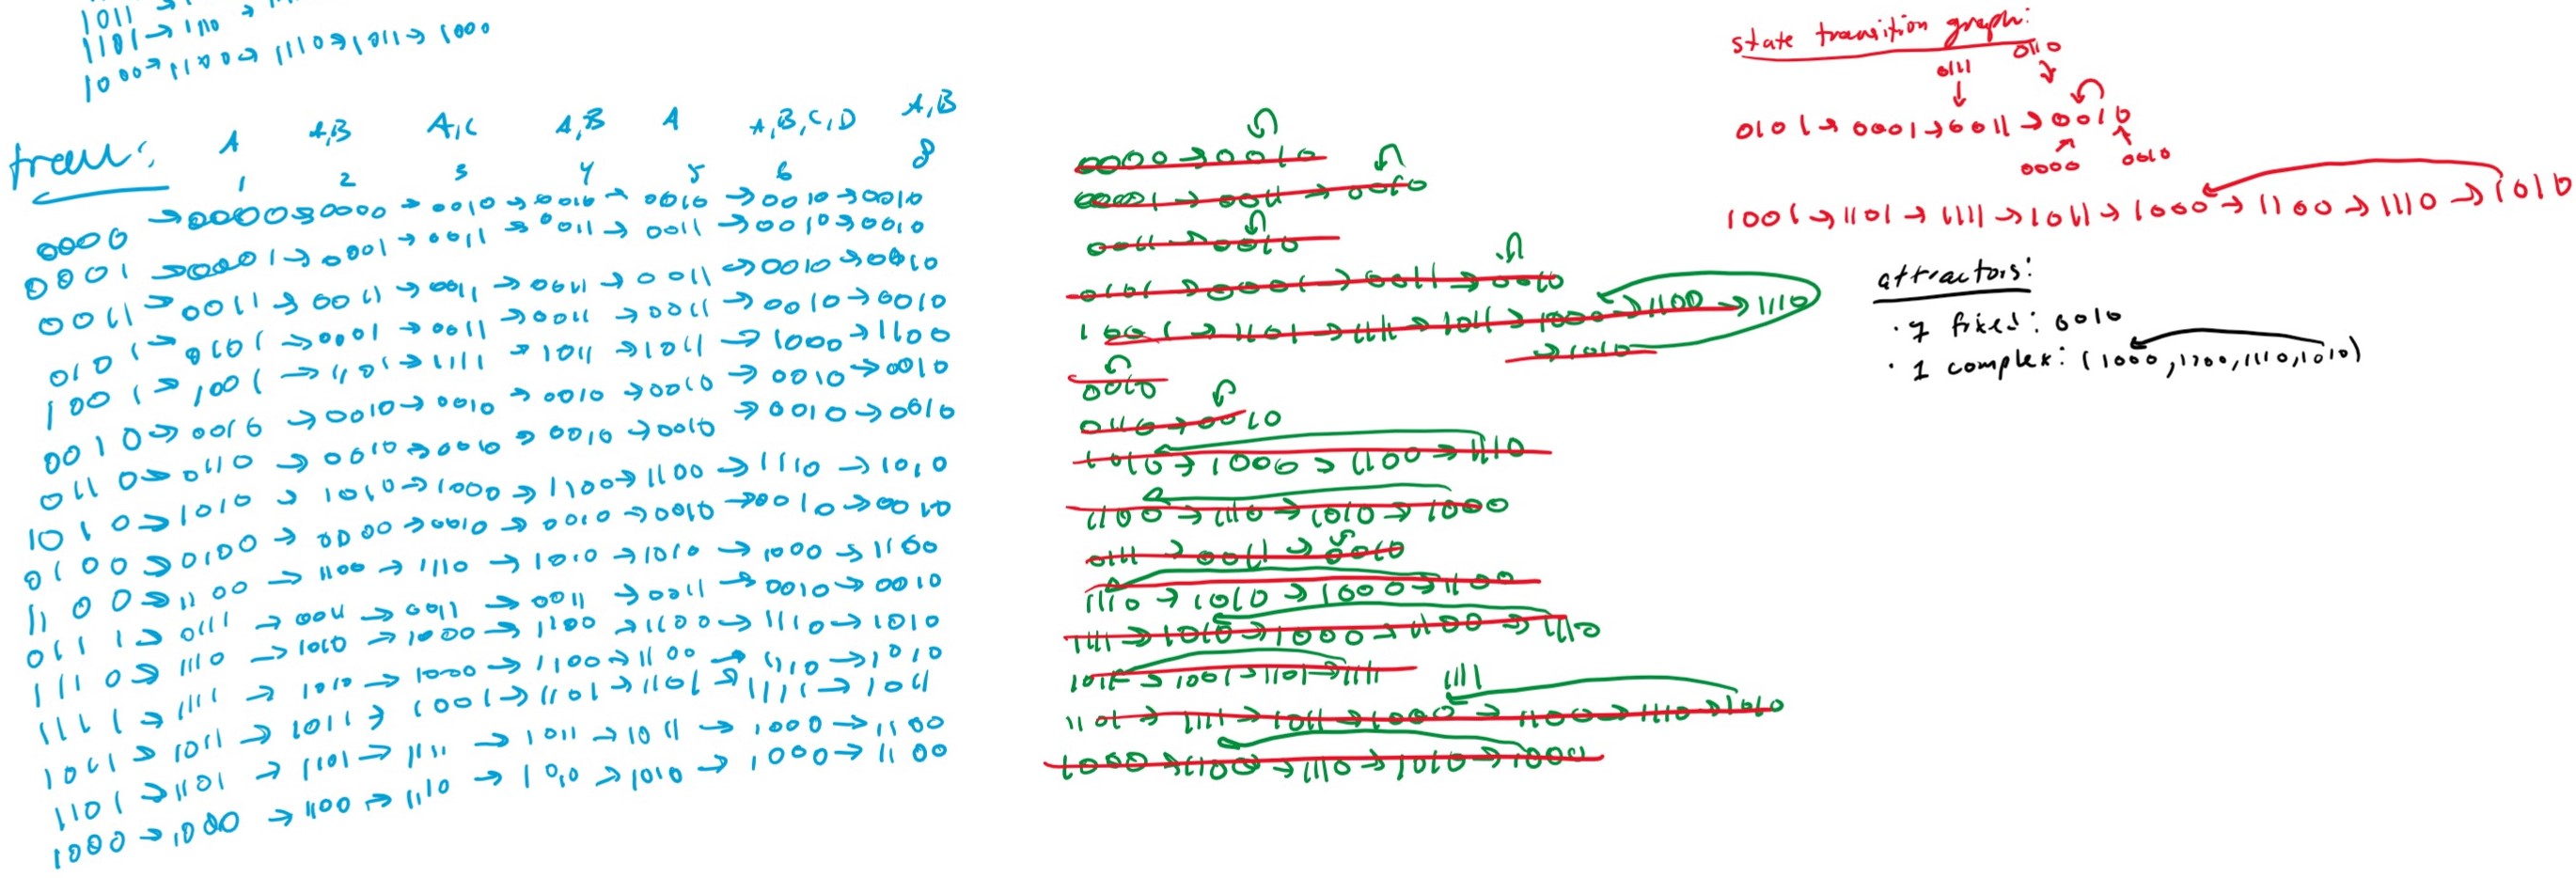 1011 →
1101 → 1110 →
1000 → 1100 → 1110 → 1011 → 1000
A A,B A,C A,B A A,B,C,D A,B
1 2 3 4 5 6 8
0000 → 0000 → 0000 → 0010 → 0010 → 0010 → 0010 → 0010
0001 → 0001 → 0001 → 0011 → 0011 → 0011 → 0010 → 0010
0011 → 0011 → 0011 → 0011 → 0011 → 0011 → 0010 → 0010
0101 → 0101 → 0001 → 0011 → 0011 → 0011 → 0010 → 0010
1001 → 1001 → 1101 → 1111 → 1011 → 1011 → 1000 → 1100
0010 → 0010 → 0010 → 0010 → 0010 → 0010 → 0010 → 0010
0110 → 0110 → 0010 → 0010 → 0010 → 0010 → 0010 → 0010
1010 → 1010 → 1010 → 1000 → 1100 → 1100 → 1110 → 1010
0100 → 0100 → 0000 → 0010 → 0010 → 0010 → 0010 → 0010
1100 → 1100 → 1100 → 1110 → 1010 → 1010 → 1000 → 1100
0111 → 0111 → 0011 → 0011 → 0011 → 0011 → 0010 → 0010
1110 → 1110 → 1010 → 1000 → 1100 → 1100 → 1110 → 1010
1111 → 1111 → 1010 → 1000 → 1100 → 1100 → 1110 → 1010
1011 → 1011 → 1011 → 1001 → 1101 → 1101 → 1111 → 1011
1101 → 1101 → 1101 → 1111 → 1011 → 1011 → 1000 → 1100
1000 → 1000 → 1100 → 1110 → 1010 → 1010 → 1000 → 1100
0000 → 0010
00001 → 0011 → 0010
0011 → 0010
0101 → 0001 → 0011 → 0010
1001 → 1101 → 1111 → 1011 → 1000 → 1100 → 1110
→ 1010
0010
0110 → 0010
1010 → 1000 → 1100 → 1110
1100 → 1110 → 1010 → 1000
0111 → 0011 → 0010
1110 → 1010 → 1000 → 1100
1111 → 1010 → 1000 → 1100 → 1110
1011 → 1001 → 1101 → 1111
1111
1101 → 1111 → 1011 → 1000 → 1100 → 1110 → 1010
1000 → 1100 → 1110 → 1010 → 1000
state transition graph:
0110
0111
0101 → 0001 → 0011 → 0010
0000 0010
1001 → 1101 → 1111 → 1011 → 1000 → 1100 → 1110 → 1010
attractors:
· 1 fixed: 0010
· 1 complex: (1000, 1100, 1110, 1010)